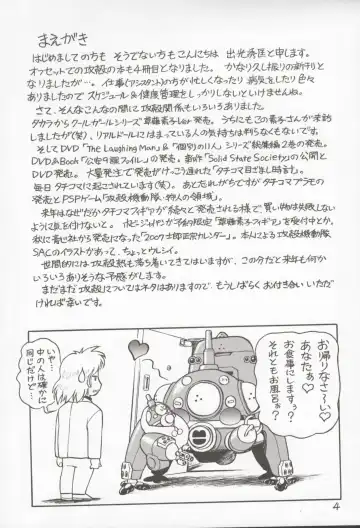 まえがき
はじめましての方も そうでない方もこんにちは 出光 と申します。
オフセットでの攻殻の本も4冊目となりました。 かなり久し振りの新刊と
なりましたが…。 仕事(アシスタント)の方が忙しくなったり 病気をしたり色々
ありましたので スケジュール&健康管理をしっかりしないといけませんね。
さて、そんなこんなの間に攻殻関係もいろいろありました。
タカラから クールガールシリーズ草薙素子Ver.発売。 うちにもこの素子さんが来訪
しましたが(笑)、リアルドールにはまっている人の気持ちは判らなくもないです。
そして DVD 「The Laughing Man」&「個別の11人」シリーズ総集編2巻の発売。
DVD&Book「公安9課ファイル」の発売。 新作「Solid State Society」の公開と
DVD発売。 大量発注で発売がけっこう遅れた「タチコマ目ざまし時計」。
毎日 タチコマに起こされています(笑)。 あとだれがらですが タチコマプラモの
発売とPSPゲーム「攻殻機動隊・狩人の領域」。
来年はなぜだか タチコマフィギュアが続々と発売される様で 買い物は失敗しない
ように気を付けないと…。 ホビージャパンが予約限定「草薙素子フィギュア」を受付中とか。
秋に 者から発売になった「2007士郎正宗カレンダー」。本人による攻殻機動隊
SACのイラストがあって、ちょっとウレシイ。
世間的には 攻殻熱も落ち着いてきてはいますが、この分だと来年も何か
いろいろありそうな予感がします。
まだまだ 攻殻についてはネタはありますので もうしばらく お付き合い いただ
ければ幸いです。
お帰りなさーい♡
あなたぁ♡
お食事にします?
それともお風呂ぉ?
いや…
中の人は確かに
同じだけど…
4